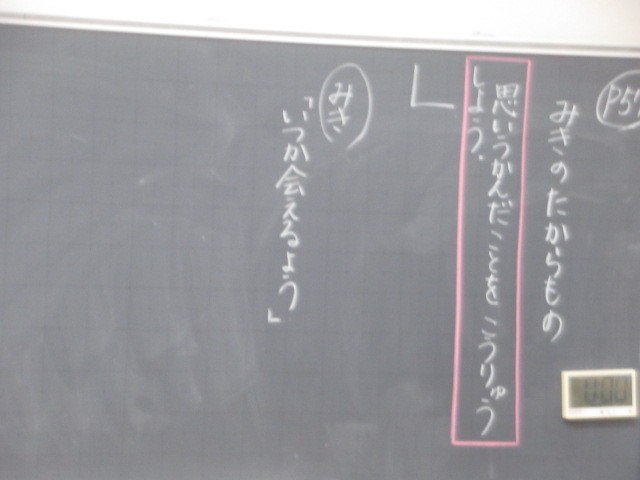 P57
みきのたからもの
思いうかんだことをこうりゅう
しよう.
みき
「いつか会えるよう」